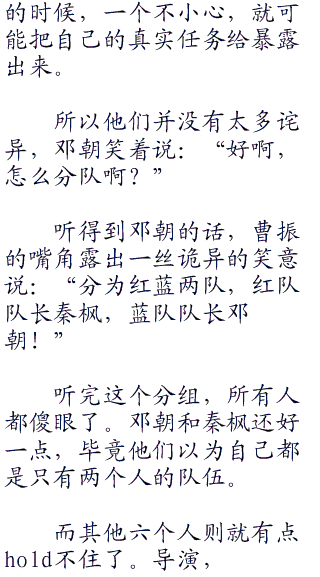 的时候，一个不小心，就可
能把自己的真实任务给暴露
出来。
所以他们并没有太多诧
异，邓朝笑着说：“好啊，
怎么分队啊？”
听得到邓朝的话，曹振
的嘴角露出一丝诡异的笑意
说：“分为红蓝两队，红队
队长秦枫，蓝队队长邓
朝！”
听完这个分组，所有人
都傻眼了。邓朝和秦枫还好
一点，毕竟他们以为自己都
是只有两个人的队伍。
而其他六个人则就有点
hold不住了。导演，